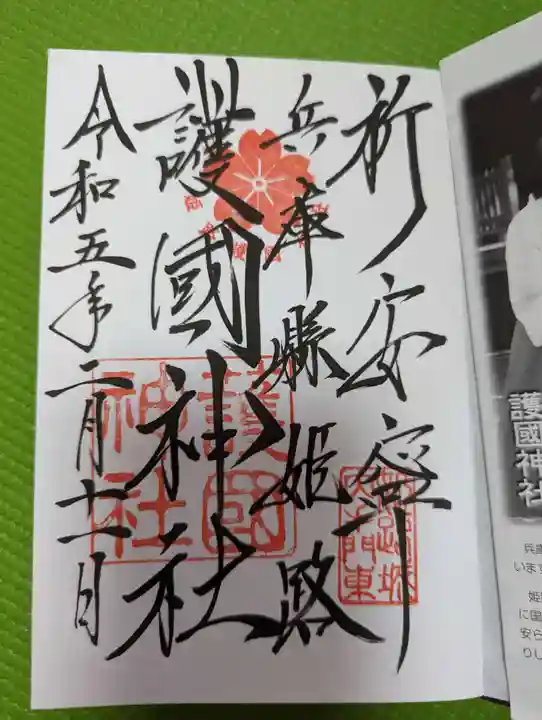 祈安寧
兵庫縣姫路
護國神社
令和五年二月十一日
護國
神社
護國神社
兵庫
います
姫路
に国
安ら
りし